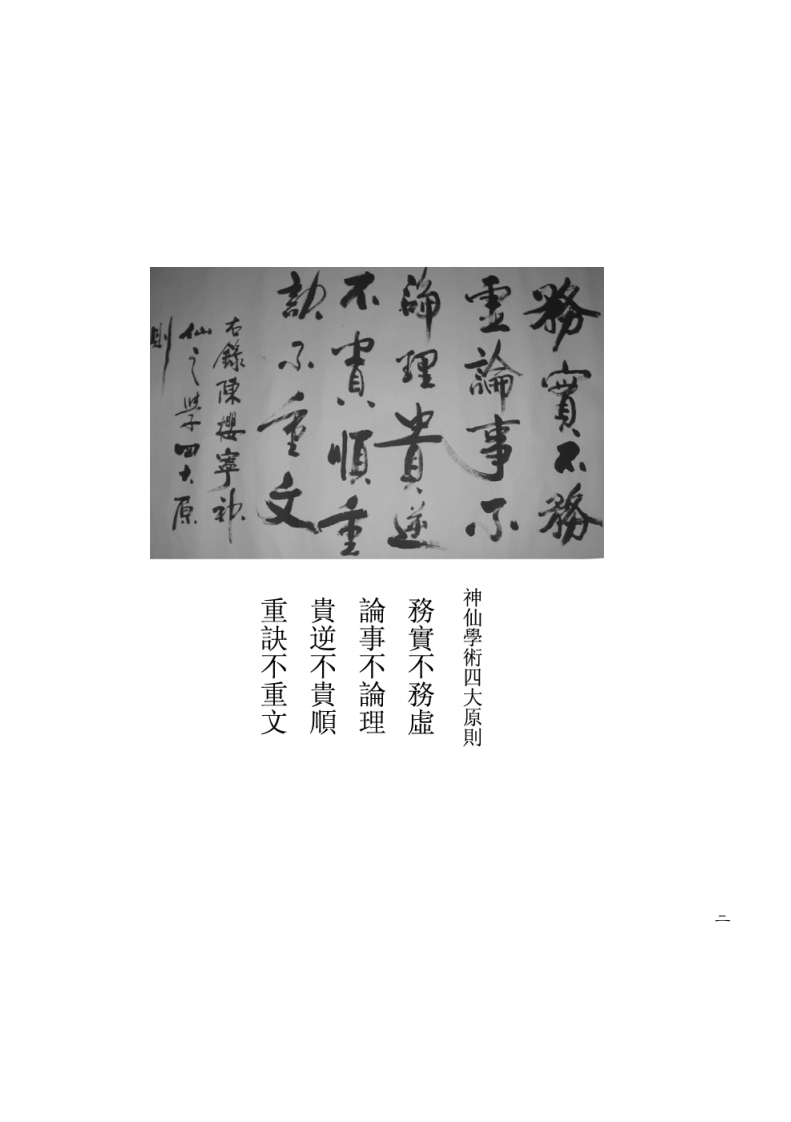 務實不務
虛論事不
論理貴逆
不貴順重
訣不重文
右錄陳攖寧神
仙之學四大原
則
神仙學術四大原則
務實不務虛
論事不論理
貴逆不貴順
重訣不重文
二